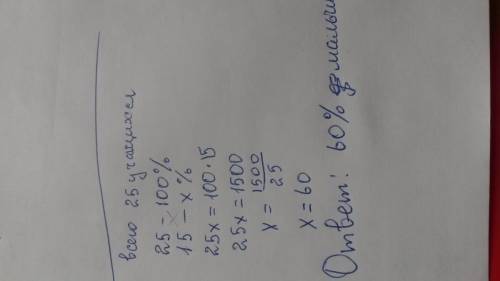 всего 25 учащихся
25 - 100%
15 - x%
25x = 100·15
25x = 1500
x = 1500/25
x = 60
Ответ: 60%